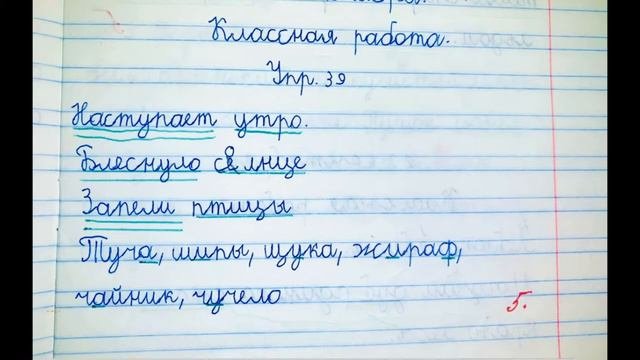 Классная работа.
Упр. 39
Наступает утро.
Блеснуло солнце
Запели птицы
Туча, шипы, щука, жираф,
чайник, чучело
5.